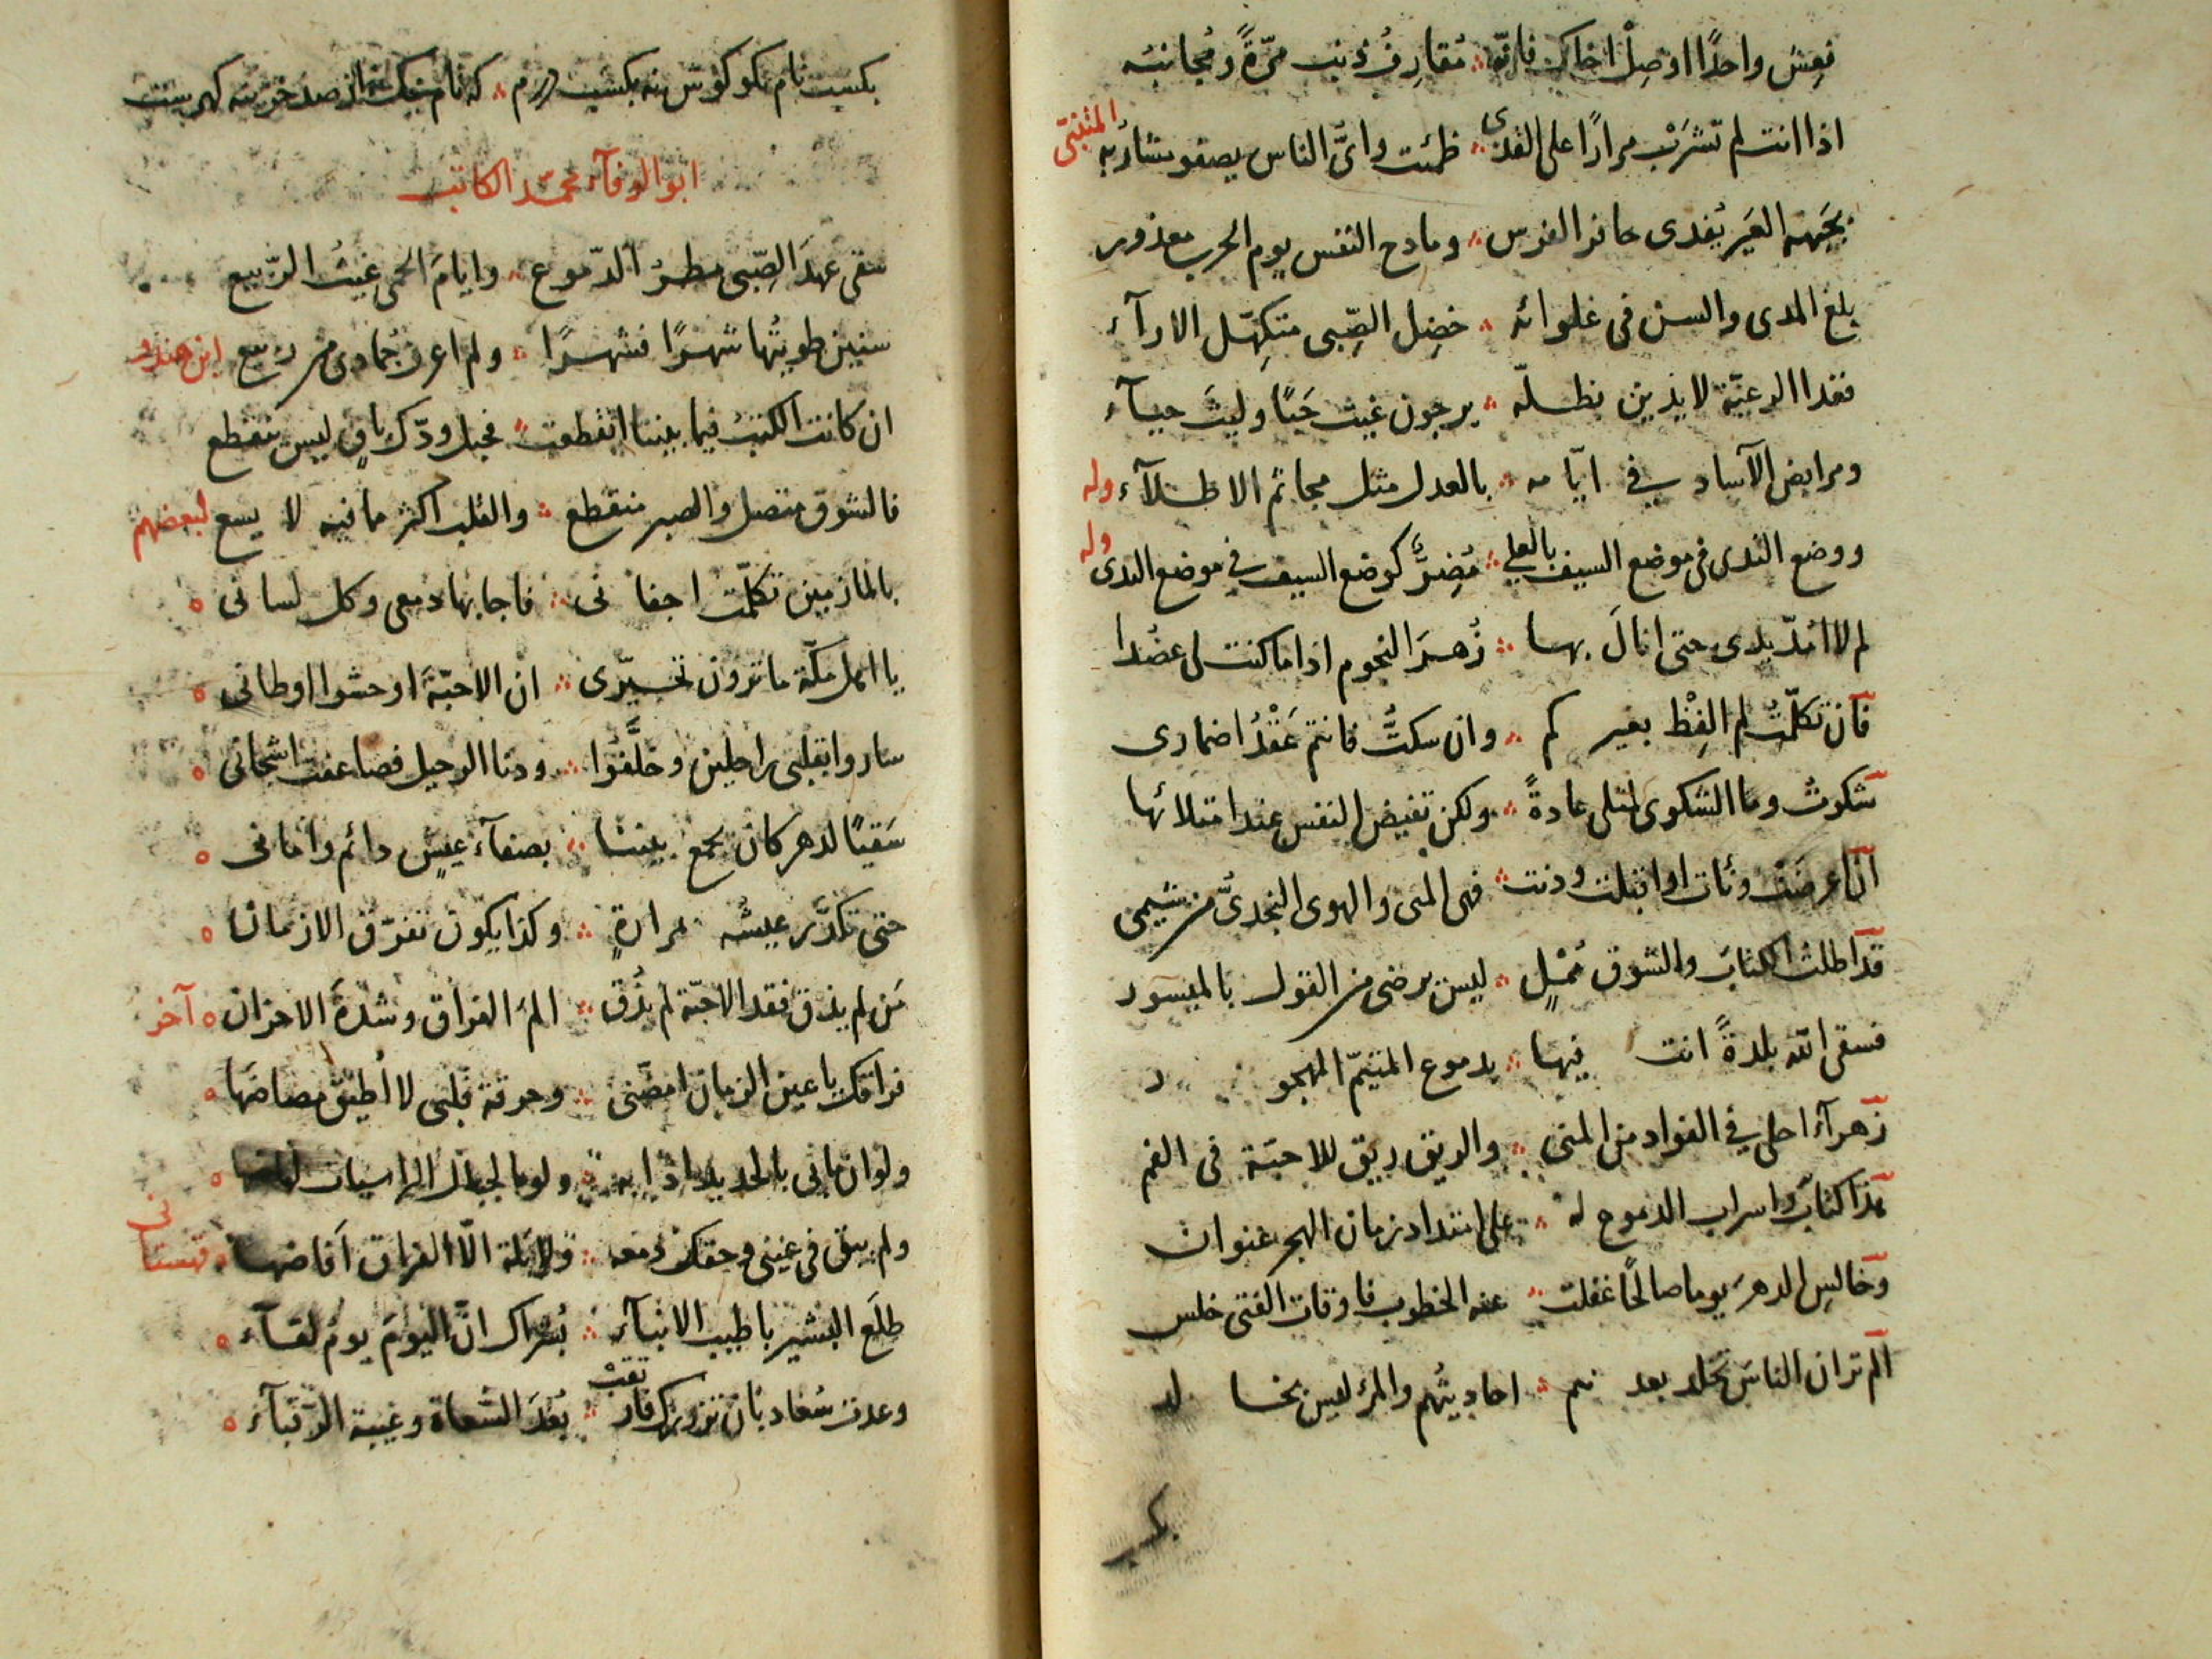 فعش واحدًا او صِلْ اخاك فانّه مُقارِفُ ذنب مرّةً ومُجانبُه
اذا انت لم تشرَبْ مرارًا على القذى ظمئت واىُّ الناس يصفو مشاربه المتنبّى
بجَبهة العَير يُفدى حافر الفرس ومادح النفس يوم الحرب معذور
بلغ المدى والسن فى غلوائه خضِل الصِّبى متكهّل الارآء
فغدا الرعيّة لايذين بظلّه يرجون غيث حَيًا وليثَ حيآء
ومرابض الآساد فى ايّامه بالعدل مثل مجاثم الاطلآء وله
ووضع الندى فى موضع السيف بالعلى مُضِرٌّ كوضع السيف فى موضع الندى وله
لم لا امُدّ يدى حتى انالَ بها زُهرَ النجوم اذا ما كنت لى عضُدا
فان تكلّمتُ لم الفِظْ بغيركم وان سكتُّ فانتم عَقْدُ اضمارى
شكوتُ وما الشكوى لمثلى عادةً ولكن تفيض النفس عند امتلائها
ان اعرضَتْ ونأت او اقبلت ودنت فهى المنى والهوى النجدىُّ من شيمى
قد اطلتُ الكتابَ والشوق مُمْلٍ ليس يرضى من القول بالميسور
فسقى الله بلدةً انت فيها بدموع المتيّم المهجور
زهرآء احلى فى الفواد من المنى والريق ريق للاحبّة فى الفم
هذا كتابٌ واسراب الدموع له على امتداد زمان الهجر عنوان
وخالِسِ الدهرَ يوما صالحًا غفلت عنه الخطوب فاوقات الفتى خلس
الم تر ان الناسَ تخلد بعدهم احاديثُهم والمرُ ليس بخالد
بكسب نام نكو كوش نه بكسب درم كه نام نيك به از صد خزينه كهر ست
ابو الوفآء محمّد الكاتب
سقى عهدَ الصِّبى مطرُ الدّموع وايامَ الحمى غيثُ الرّبيع
سنين طويتُها شهرًا فشهرًا ولم اعرف جُمادى من ربيع ابن هندو
ان كانت الكتبُ فيما بيننا انقطعت فحبل ودّك باقٍ ليس ينقطع
فالشوق متصل والصبر منقطع والقلب اكثر ما فيه لا يسع لبعضهم
بالمازمين تكلّمت اجفانى فاجابها دمعى وكل لسانى
يا اهل مكّة ما ترون تحيّرى ان الاحبّةَ اوحشوا اوطانى
ساروا بقلبى راحلين وخلَّفوا ودنا الرحيل فضاعفت اشجانى
سَقيًا لدهر كان يجمع بيننا بصفآء عيشٍ دائم وامانى
حتى تكدَّر عيشه بمرارةٍ وكذا يكون تفرّق الازمان
مَن لم يذق فقد الاحبّة لم يذُق المَ الفراق وشدّةَ الاحزان آخر
فراقك يا عين الزمان امضّنى وحرقة قلبى لا اُطيق مضاضَها
ولو ان ما بى بالحديد اذابه ولو بالجبال الراسيات
ولم يبق فى عينى وحقك دمعه ولا بلّة الّا الفراق اَفاضها
طلَع البشير باطيب الانبآء بُشراك انّ اليومَ يومُ لقآء
وعدت سُعاد بان تزورك فارتقبْ بُعدَ السُّعاة وغيبة الرّقبآء